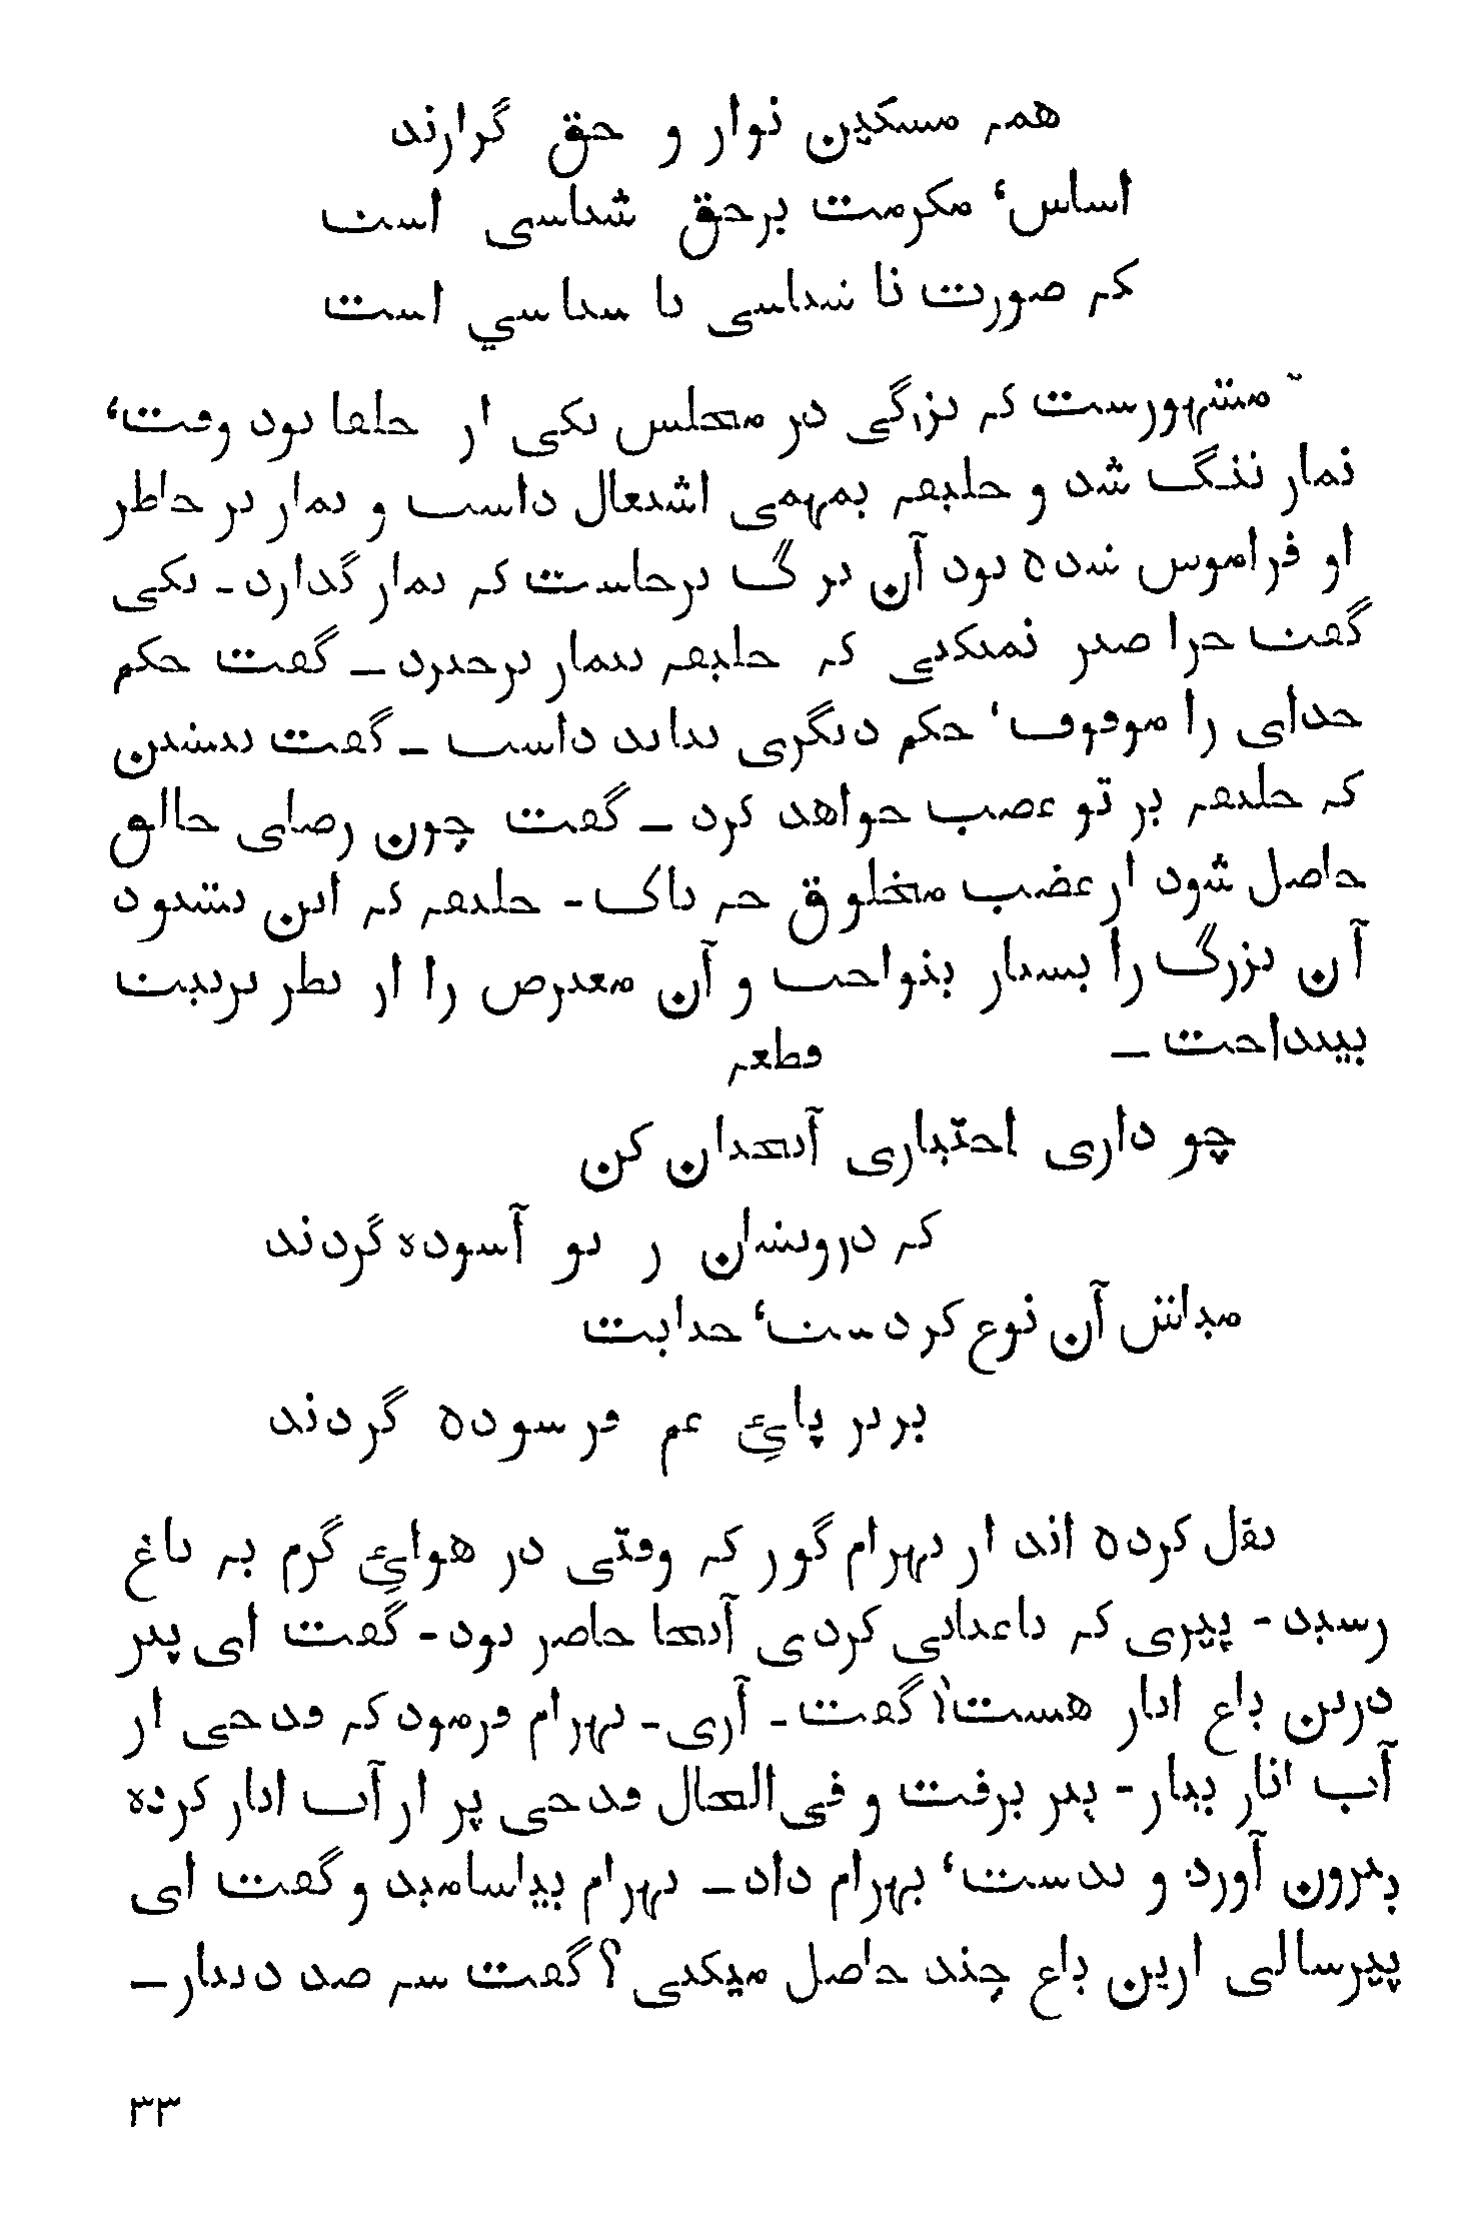 همه مسکین نواز و حق گزارند
اساس، مکرمت برحق شناسی است
که صورت نا شناسی نا سپاسي است
مشهورست که بزرگی در مجلس یکی از خلفا بود وقت،
نماز تنگ شد و خلیفه بمهمی اشتغال داشت و نماز بر خاطر
او فراموش شده بود آن بزرگ برخاست که نماز گذارد ـ یکی
گفت چرا صبر نمیکنی که خلیفه بنماز برخیزد ـ گفت حکم
خدای را موقوف، حکم دیگری نباید داشت ـ گفت بنشین
که خلیفه بر تو غضب خواهد کرد ـ گفت چون رضای خالق
حاصل شود از غضب مخلوق چه باک ـ خلیفه که این بشنود
آن بزرگ را بسیار بنواخت و آن معترض را از نظر تربیت
بینداخت ـ
قطعه
چو داری اختیاری آنچنان کن
که درویشان ز تو آسوده گردند
مباش آن نوع کز دست، جنایت
بزیر پائِ غم فرسوده گردند
نقل کرده اند از بهرام گور که وقتی در هوائِ گرم به باغ
رسید ـ پیری که باغبانی کردی آنجا حاضر بود ـ گفت ای پیر
درین باغ انار هست؟ گفت ـ آری ـ بهرام فرمود که قدحی از
آب انار بیار ـ پیر برفت و فی‌الحال قدحی پر از آب انار کرده
بیرون آورد و بدست، بهرام داد ـ بهرام بیاشامید و گفت ای
پیرسالی ازین باغ چند حاصل میکنی؟ گفت سه صد دینار ـ
۳۳